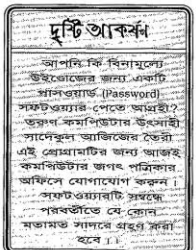 দৃষ্টি আকর্ষণ
আপনি কি বিনামূল্যে
উইন্ডোজের জন্য একটি
পাসওয়ার্ড (Password)
সফটওয়্যার পেতে আগ্রহী?
তরুণ কমপিউটার উৎসাহী
সাদেকুল আজিজের তৈরী
এই প্রোগ্রামটির জন্য আজই
কমপিউটার জগৎ পত্রিকার
অফিসে যোগাযোগ করুন।
সফটওয়্যারটি সম্বন্ধে
পরবর্তীতে যে-কোন
মতামত সাদরে গ্রহণ করা
হবে।।